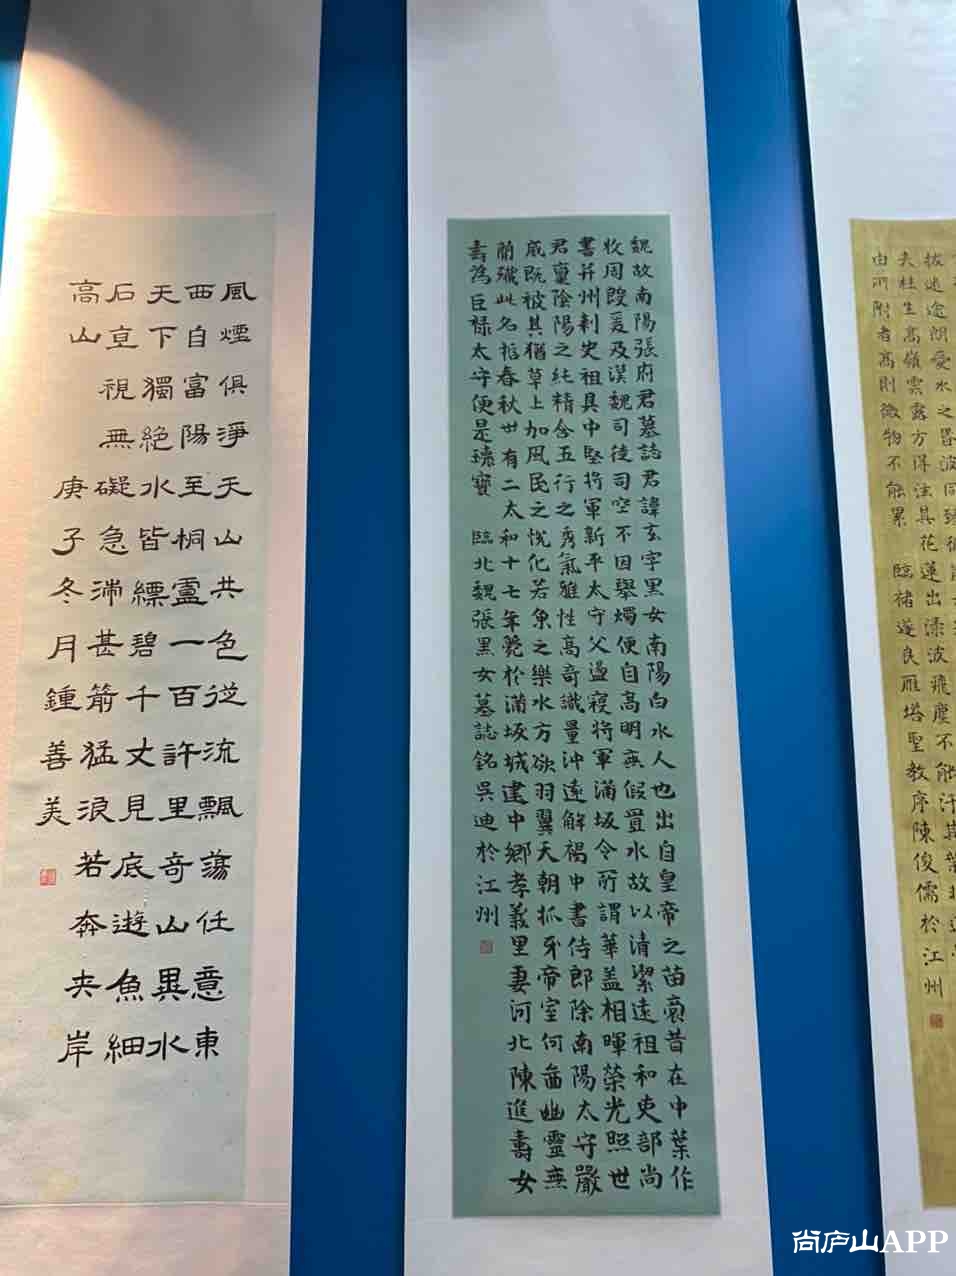 風煙俱淨天山共色從流飄蕩任意東
西自富陽至桐廬一百許里奇山異水
天下獨絕水皆縹碧千丈見底遊魚細
石直視無礙急湍甚箭猛浪若奔夾岸
高山 庚子冬月鍾善美
魏故南陽張府君墓誌君諱玄字黑女南陽白水人也出自皇帝之苗裔昔在中葉作
牧周殷爰及漢魏司徒司空不因舉燭便自高明無假置水故以清潔遠祖和吏部尚
書并州刺史祖具中堅將軍新平太守父盪寇將軍蒲坂令所謂華蓋相暉榮光照世
君稟陰陽之純精含五行之秀氣雅性高奇識量沖遠解褐中書侍郎除南陽太守嚴
威既被其猶草上加風民之悅化若魚之樂水方欲羽翼天朝抓牙帝室何啚幽靈無
簡殲此名哲春秋卅有二太和十七年薨於蒲坂城建中鄉孝義里妻河北陳進壽女
壽為巨祿太守便是瓌寶 臨北魏張黑女墓誌銘吳迪於江州
拔迷途朗愛水之昏波同臻
夫桂生高嶺雲露方得泫其花蓮出淥波飛塵不能汙其葉非
由所附者高則微物不能累 臨褚遂良雁塔聖教序陳俊儒於江州
尚庐山APP